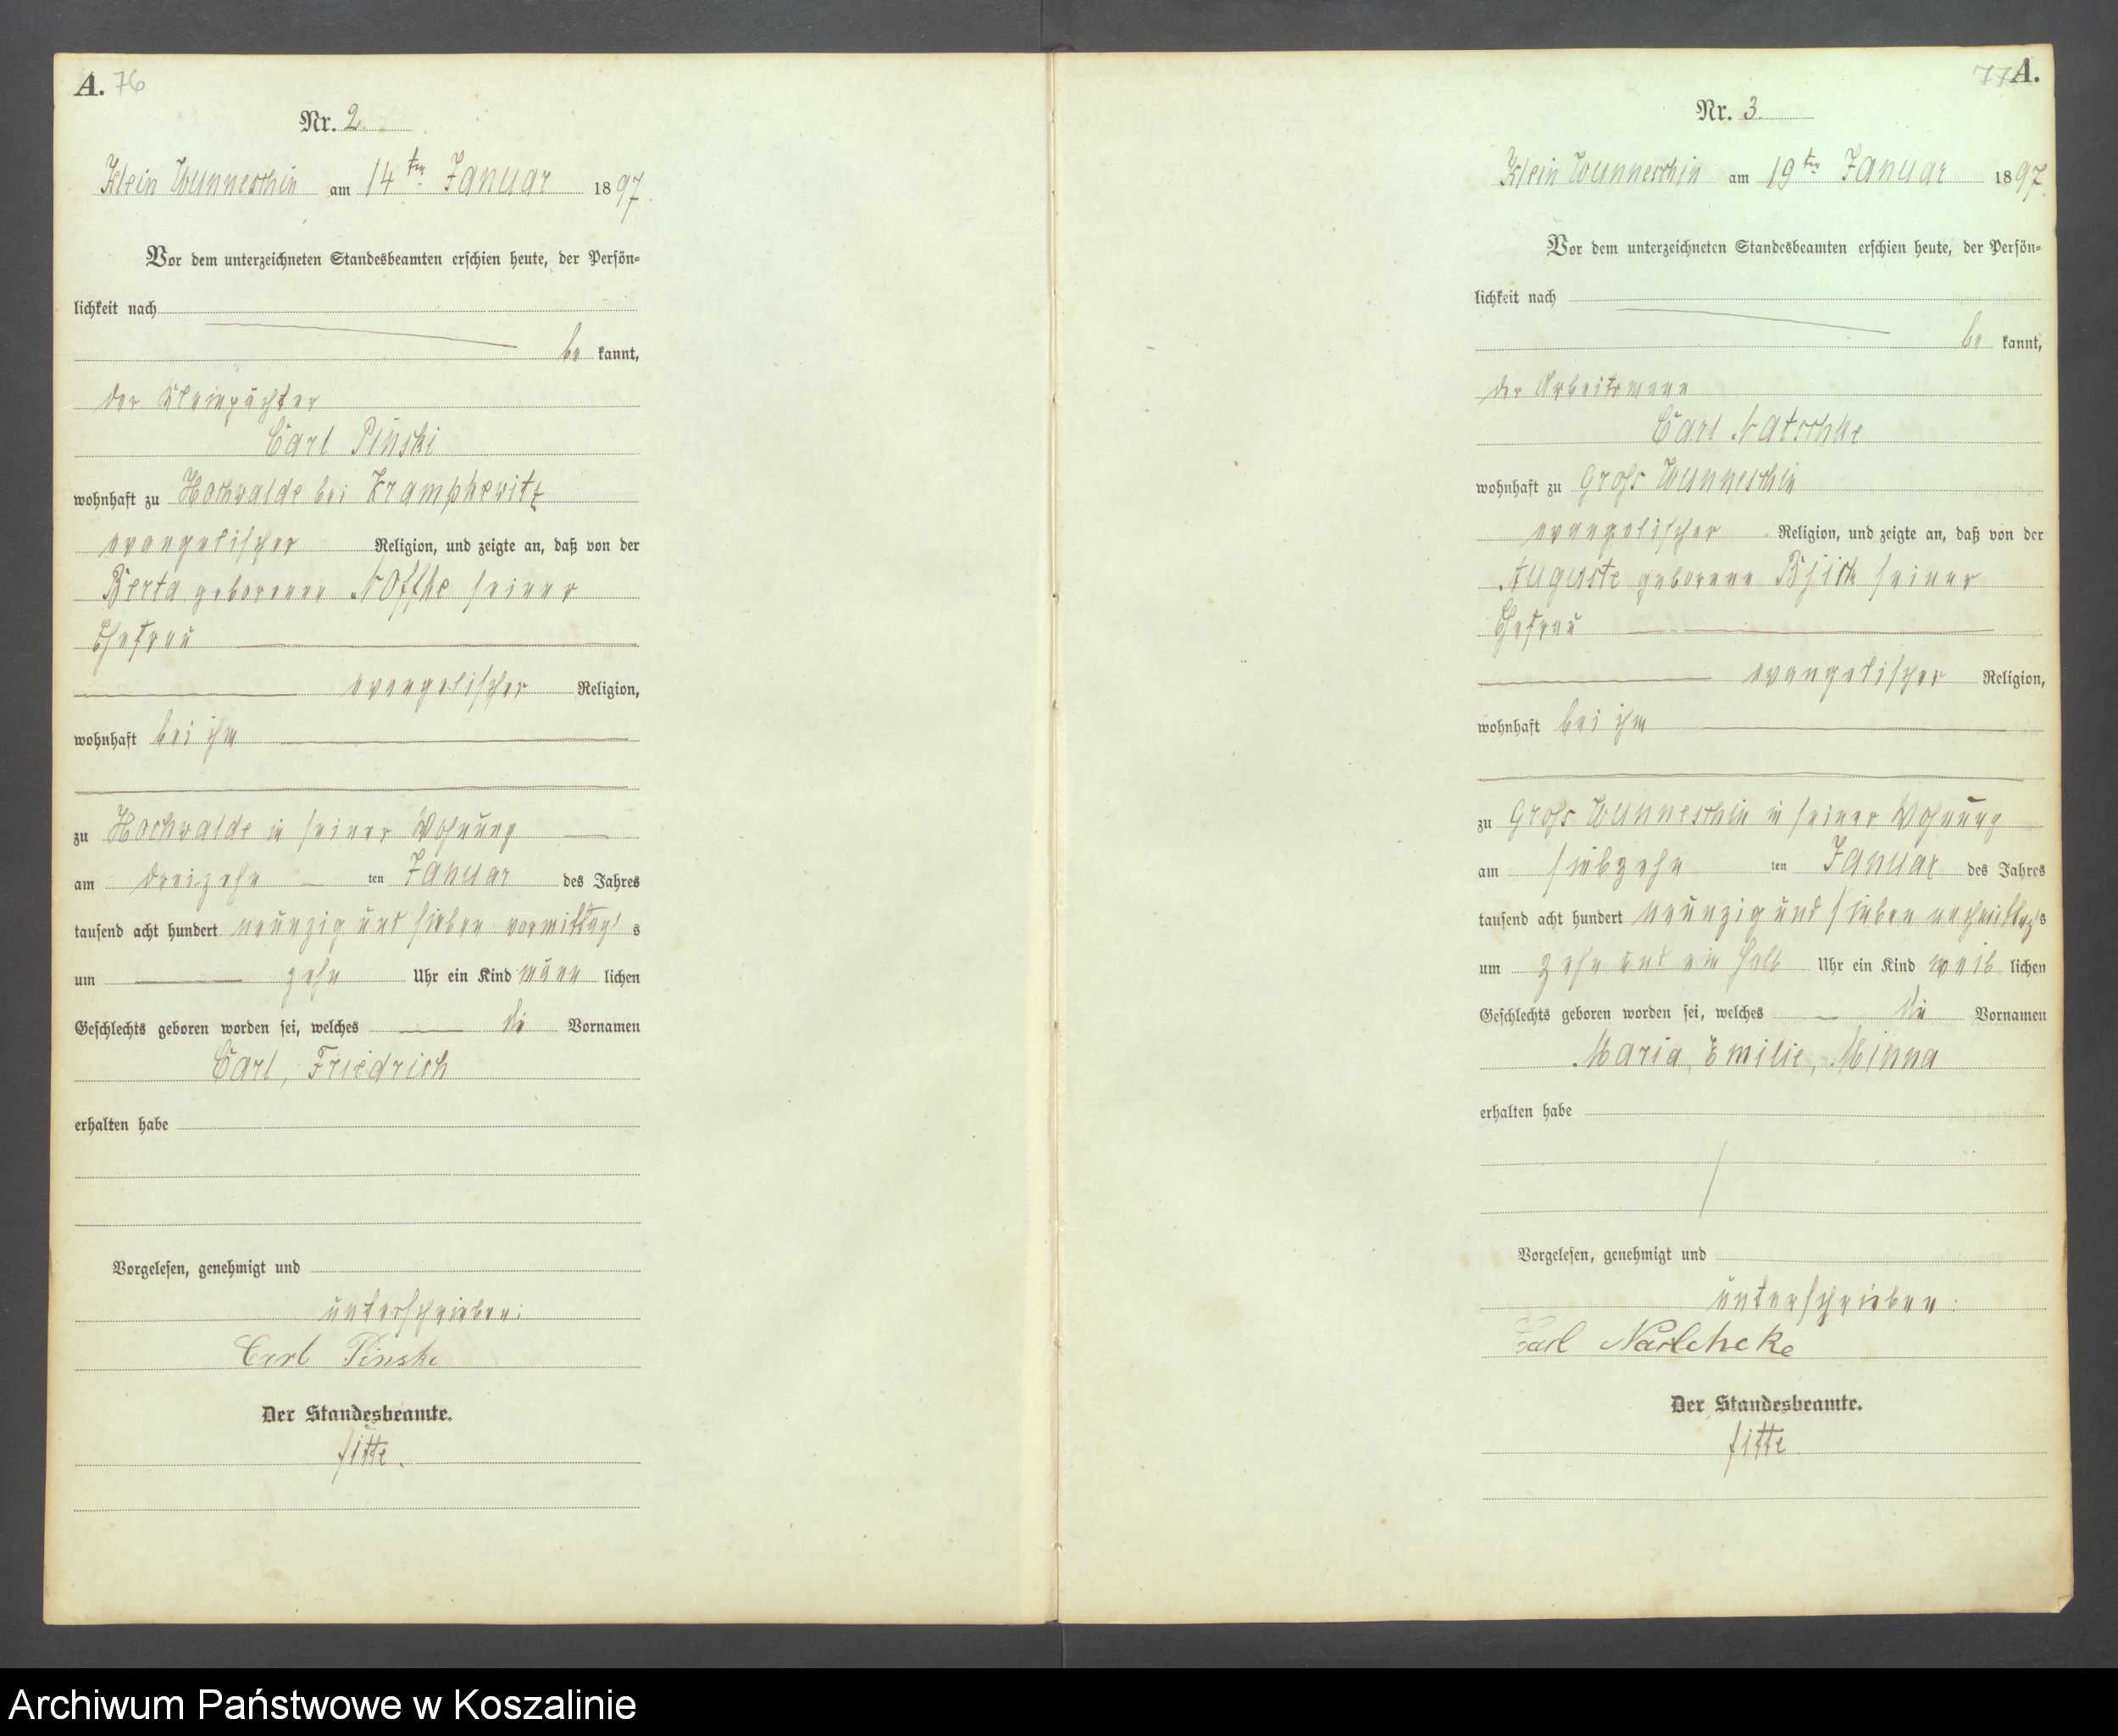 A. 76
Nr. 2.
Klein Wunneschin am 14ten Januar 1897.
Vor dem unterzeichneten Standesbeamten erschien heute, der Persön-
lichkeit nach
be kannt,
der Kleinpächter
Carl Pinski
wohnhaft zu Hochwalde bei Krampkewitz
evangelischer Religion, und zeigte an, daß von der
Berta geborenen Noffke seiner
Ehefrau
evangelischer Religion,
wohnhaft bei ihm
zu Hochwalde in seiner Wohnung
am dreizehn ten Januar des Jahres
tausend acht hundert neunzig und sieben vormittags
um zehn Uhr ein Kind männ lichen
Geschlechts geboren worden sei, welches die Vornamen
Carl, Friedrich
erhalten habe
Vorgelesen, genehmigt und
unterschrieben:
Carl Pinske
Der Standesbeamte.
77 A.
Nr. 3.
Klein Wunneschin am 19ten Januar 1897.
Vor dem unterzeichneten Standesbeamten erschien heute, der Persön-
lichkeit nach
be kannt,
der Arbeitsmann
Carl Natschke
wohnhaft zu Gross Wunneschin
evangelischer Religion, und zeigte an, daß von der
Auguste geborene seiner
Ehefrau
evangelischer Religion,
wohnhaft bei ihm
zu Gross Wunneschin in seiner Wohnung
am siebzehn ten Januar des Jahres
tausend acht hundert neunzig und sieben nachmittags
um zehn und ein halb Uhr ein Kind weib lichen
Geschlechts geboren worden sei, welches die Vornamen
Maria, Emilie, Minna
erhalten habe
Vorgelesen, genehmigt und
unterschrieben:
Carl
Der Standesbeamte.
Archiwum Państwowe w Koszalinie